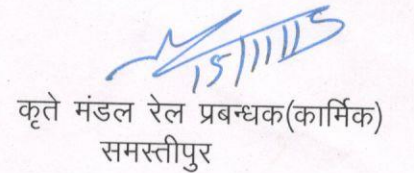 15/11/15
कृते मंडल रेल प्रबन्धक(कार्मिक)
समस्तीपुर